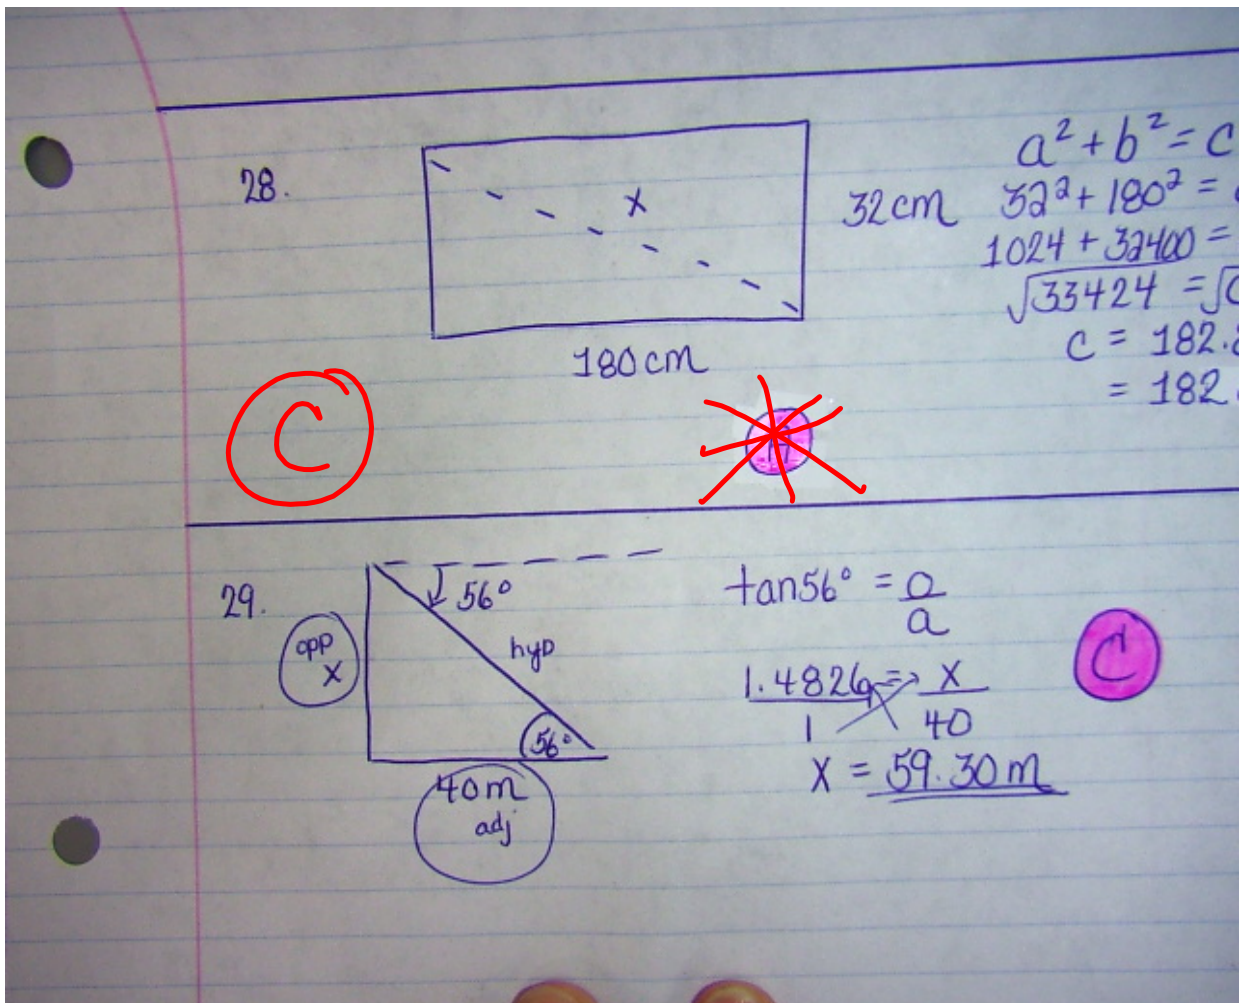 28.
x
32cm
180cm
a² + b² = c
32² + 180² =
1024 + 32400 =
√33424 = √c
c = 182.8
= 182.
C
A
29.
56°
opp
x
hyp
56°
40m
adj
tan56° = o/a
1.4826/1 = x/40
x = 59.30m
C